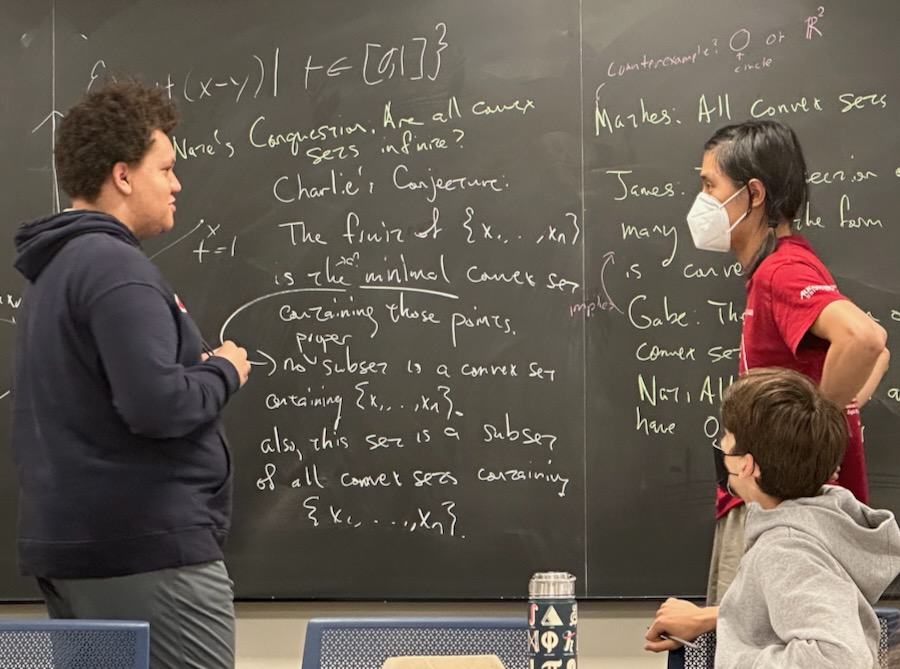 t(x-y) | t ∈ [0,1] }
Nate's Conquestion. Are all convex
sets infinite?
Charlie's Conjecture:
The finite of {x₁, ..., xₙ}
is the minimal convex set
containing those points.
proper
→ no subset is a convex set
containing {x₁, ..., xₙ}.
also, this set is a subset
of all convex sets containing
{x₁, ..., xₙ}.
x
t=1
counterexample? ○ or ℝ²
↑
circle
Marhes: All convex sets
James:
many the form
is
implies
Gabe: The
convex set
Nate: All
have